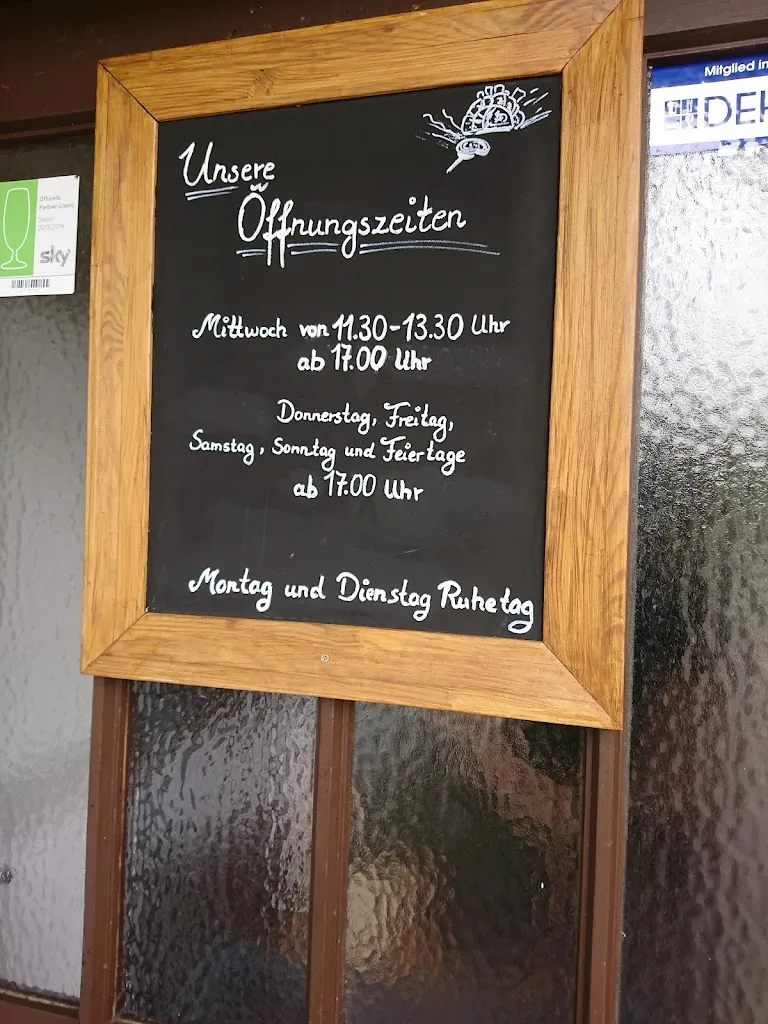 Unsere
Öffnungszeiten
Mittwoch von 11.30-13.30 Uhr
ab 17.00 Uhr
Donnerstag, Freitag,
Samstag, Sonntag und Feiertage
ab 17.00 Uhr
Montag und Dienstag Ruhetag
Offizielle
Partner-Lizenz
Saison
sky
Mitglied im
DEH